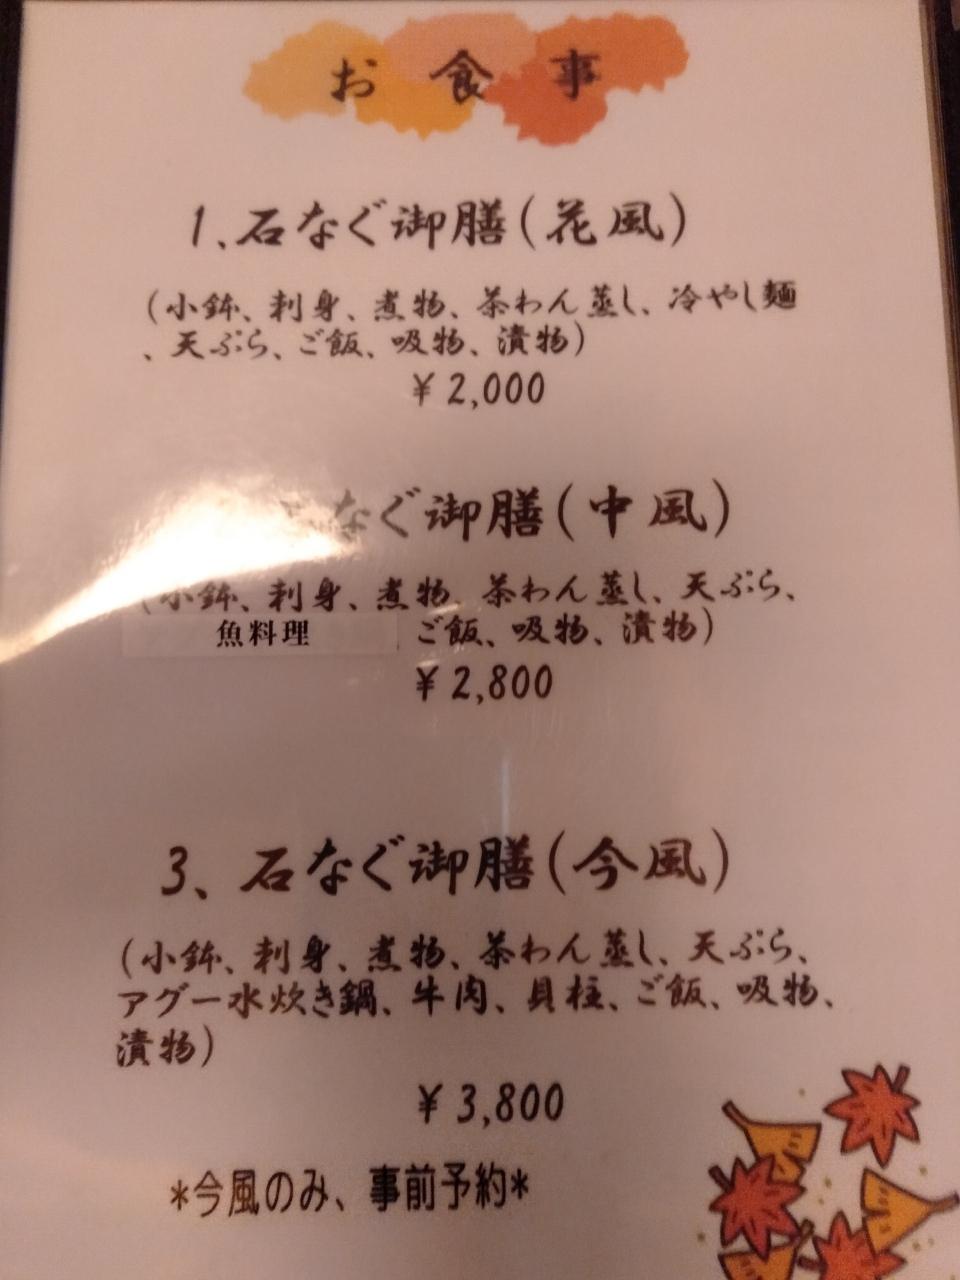 お食事
1、石なぐ御膳(花風)
(小鉢、刺身、煮物、茶わん蒸し、冷やし麺
、天ぷら、ご飯、吸物、漬物)
¥2,000
なぐ御膳(中風)
(小鉢、刺身、煮物、茶わん蒸し、天ぷら、
魚料理 ご飯、吸物、漬物)
¥2,800
3、石なぐ御膳(今風)
(小鉢、刺身、煮物、茶わん蒸し、天ぷら、
アグー水炊き鍋、牛肉、貝柱、ご飯、吸物、
漬物)
¥3,800
*今風のみ、事前予約*